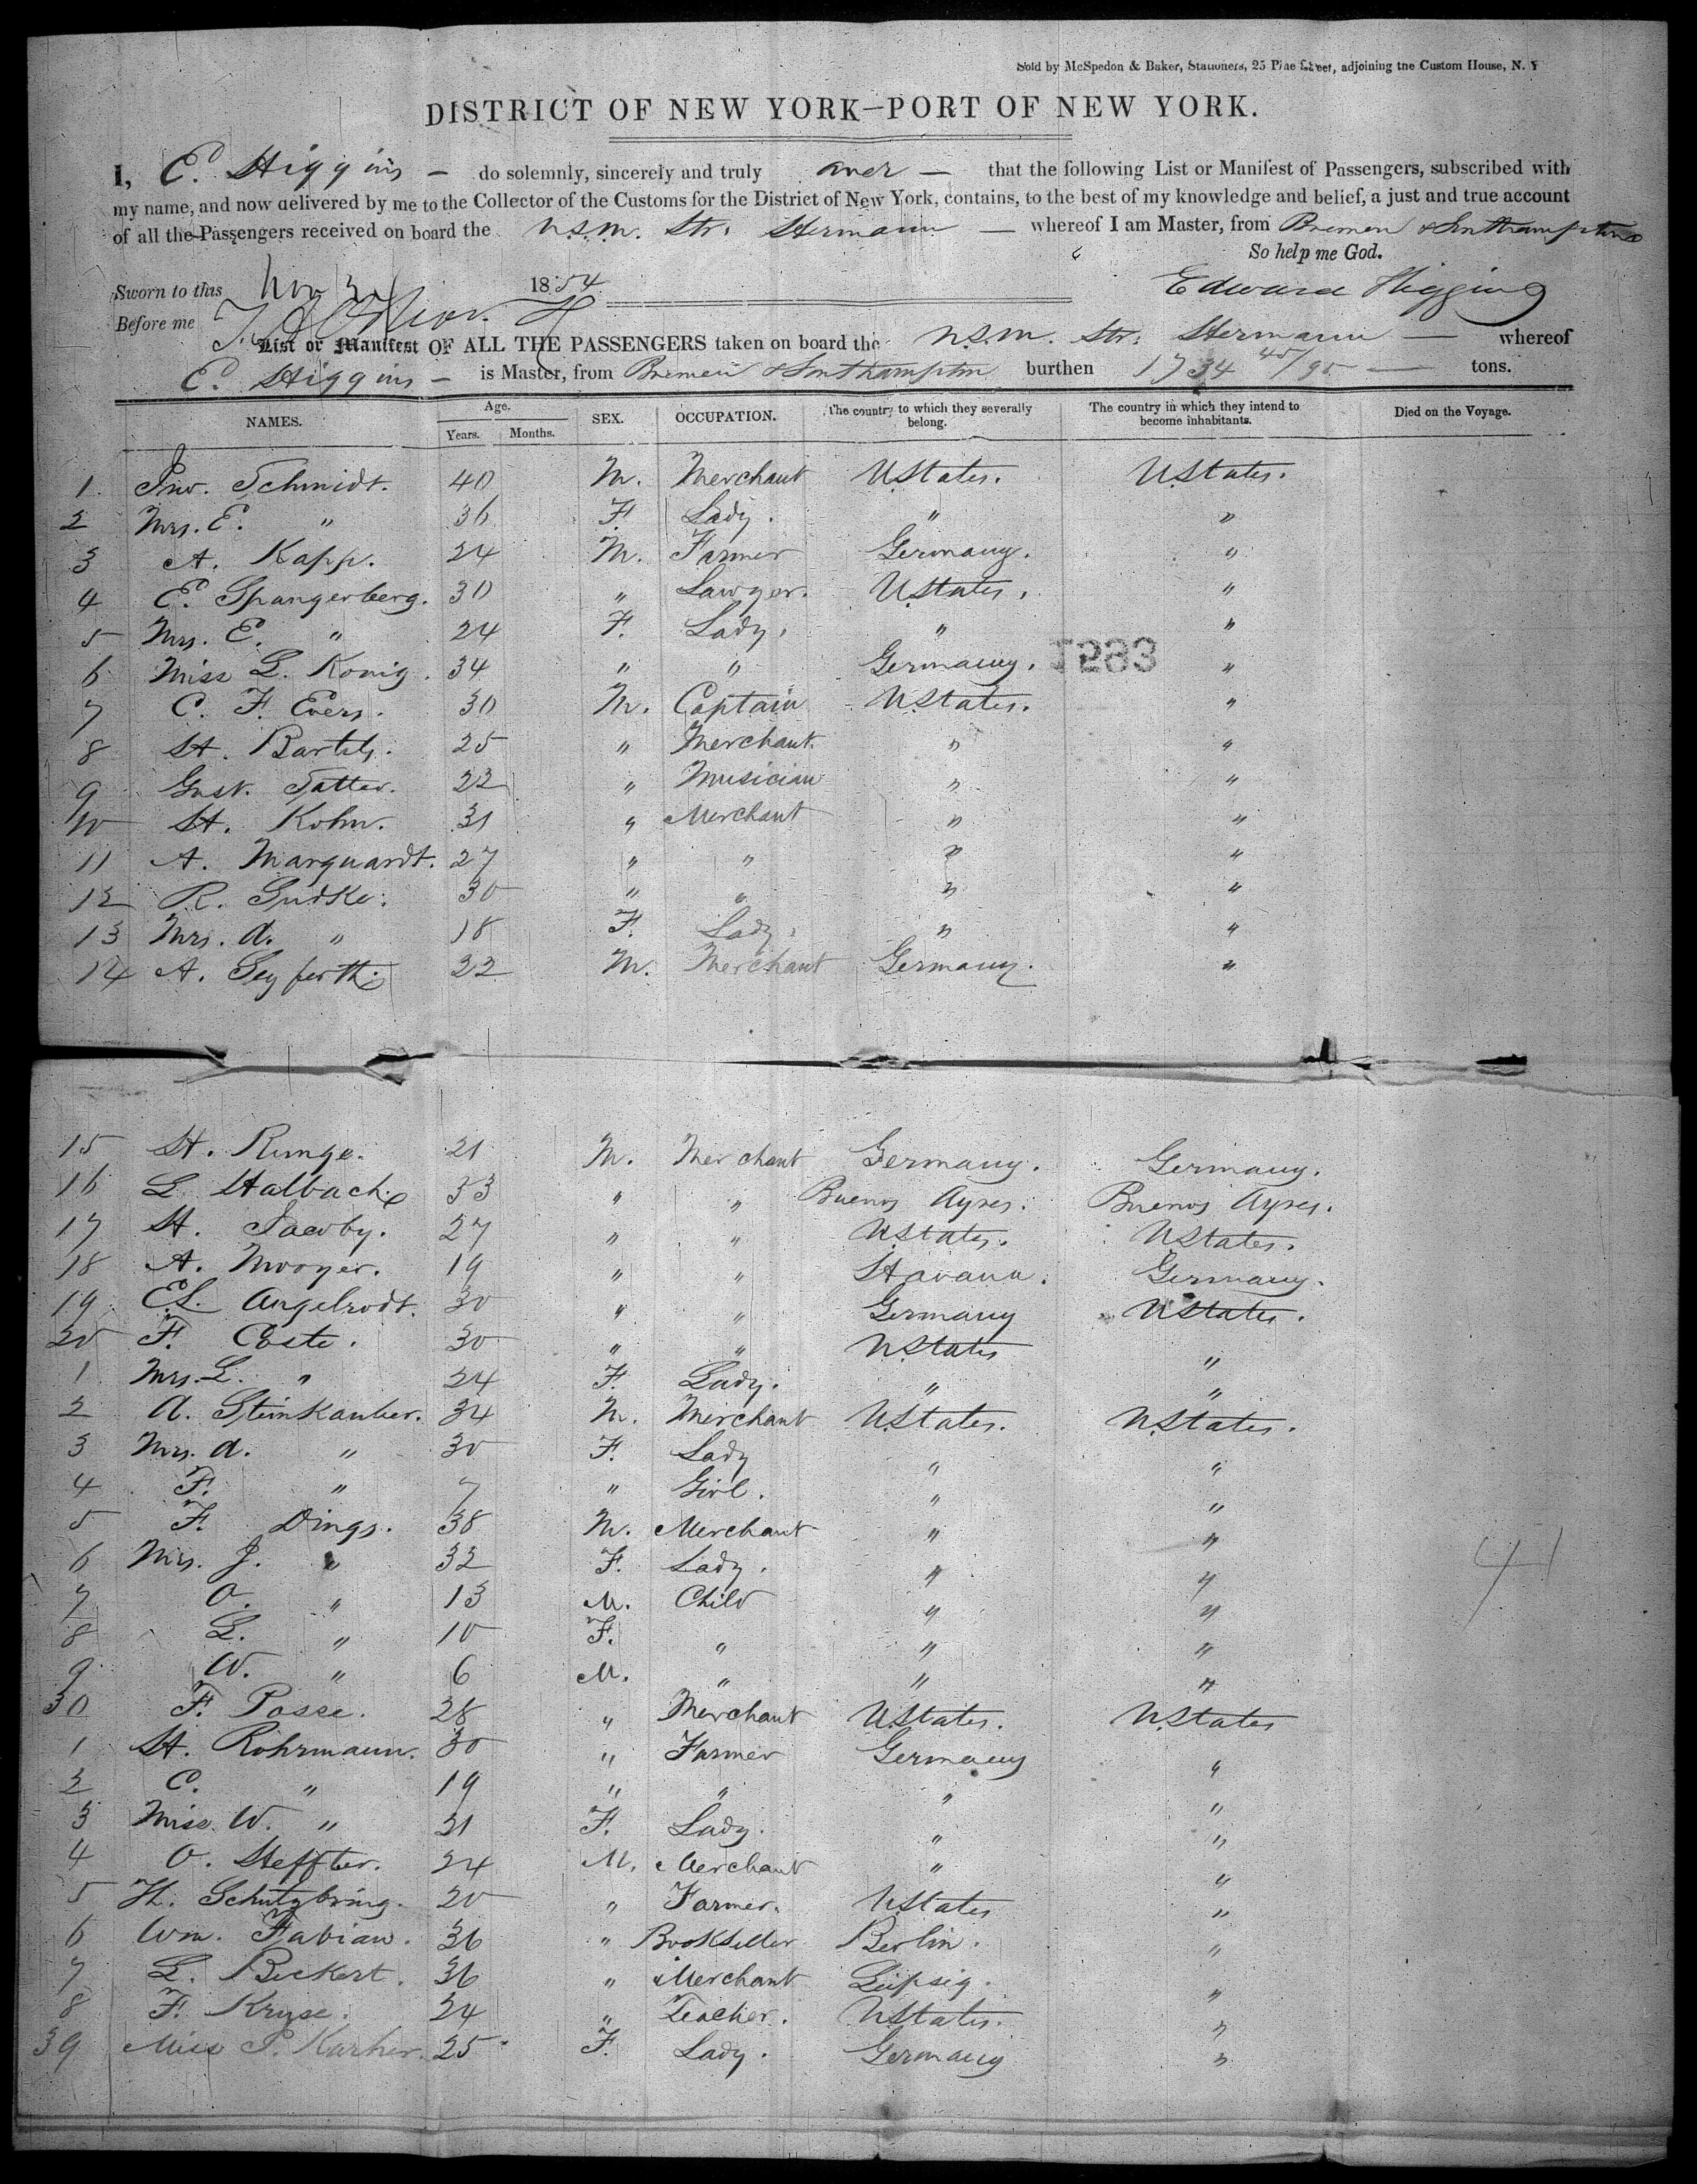 Sold by McSpedon & Baker, Stationers, 25 Pine Street, adjoining the Custom House, N. Y
DISTRICT OF NEW YORK—PORT OF NEW YORK.
I, E. Higgins — do solemnly, sincerely and truly aver — that the following List or Manifest of Passengers, subscribed with
my name, and now delivered by me to the Collector of the Customs for the District of New York, contains, to the best of my knowledge and belief, a just and true account
of all the Passengers received on board the U.S.M. Str. Hermann — whereof I am Master, from Bremen & Southampton
So help me God.
Sworn to this Nov 1854
Edward Higgins
Before me
List or Manifest OF ALL THE PASSENGERS taken on board the U.S.M. Str. Hermann — whereof
E. Higgins — is Master, from Bremen & Southampton burthen 1734 45/95 — tons.
NAMES. Age. Years. Months. SEX. OCCUPATION. The country to which they severally belong. The country in which they intend to become inhabitants. Died on the Voyage.
1 Jno. Schmidt. 40 M. Merchant UStates. UStates.
2 Mrs. E. " 36 F. Lady. " "
3 A. Kapp. 24 M. Farmer Germany. "
4 E. Spangerberg. 30 " Lawyer. UStates. "
5 Mrs. E. " 24 F. Lady. " "
6 Miss L. Konig. 34 " " Germany. "
7 C. F. Evers. 30 M. Captain UStates. "
8 H. Bartels. 25 " Merchant. " "
9 Gust. Satter. 22 " Musician " "
10 H. Kohn. 31 " Merchant " "
11 A. Marquardt. 27 " " " "
12 R. Gudke. 30 " " " "
13 Mrs. A. " 18 F. Lady. " "
14 A. Seyferth. 22 M. Merchant Germany. "
15 H. Runge. 21 M. Merchant Germany. Germany.
16 L. Halbach. 33 " " Buenos Ayres. Buenos Ayres.
17 H. Jacoby. 27 " " UStates. UStates.
18 A. Mooyer. 19 " " Havana. Germany.
19 E.L. Angelrodt. 30 " " Germany UStates.
20 F. Coste. 30 " " UStates "
1 Mrs. L. " 24 F. Lady. " "
2 A. Steinkauler. 34 M. Merchant UStates. UStates.
3 Mrs. A. " 30 F. Lady " "
4 F. " 7 " Girl. " "
5 F. Dings. 38 M. Merchant " "
6 Mrs. J. " 32 F. Lady. " "
7 O. " 13 M. Child " "
8 L. " 10 F. " " "
9 W. " 6 M. " " "
30 F. Posse. 28 " Merchant UStates. UStates
1 H. Rohrmann. 30 " Farmer Germany "
2 C. " 19 " " " "
3 Miss W. " 21 F. Lady. " "
4 O. Heffter. 24 M. Merchant " "
5 H. Schutzbring. 20 " Farmer. UStates "
6 Wm. Fabian. 36 " Bookseller Berlin. "
7 L. Beckert. 36 " Merchant Leipsig. "
8 F. Kruse. 24 " Teacher. UStates. "
39 Miss P. Karher. 25 F. Lady. Germany "
41